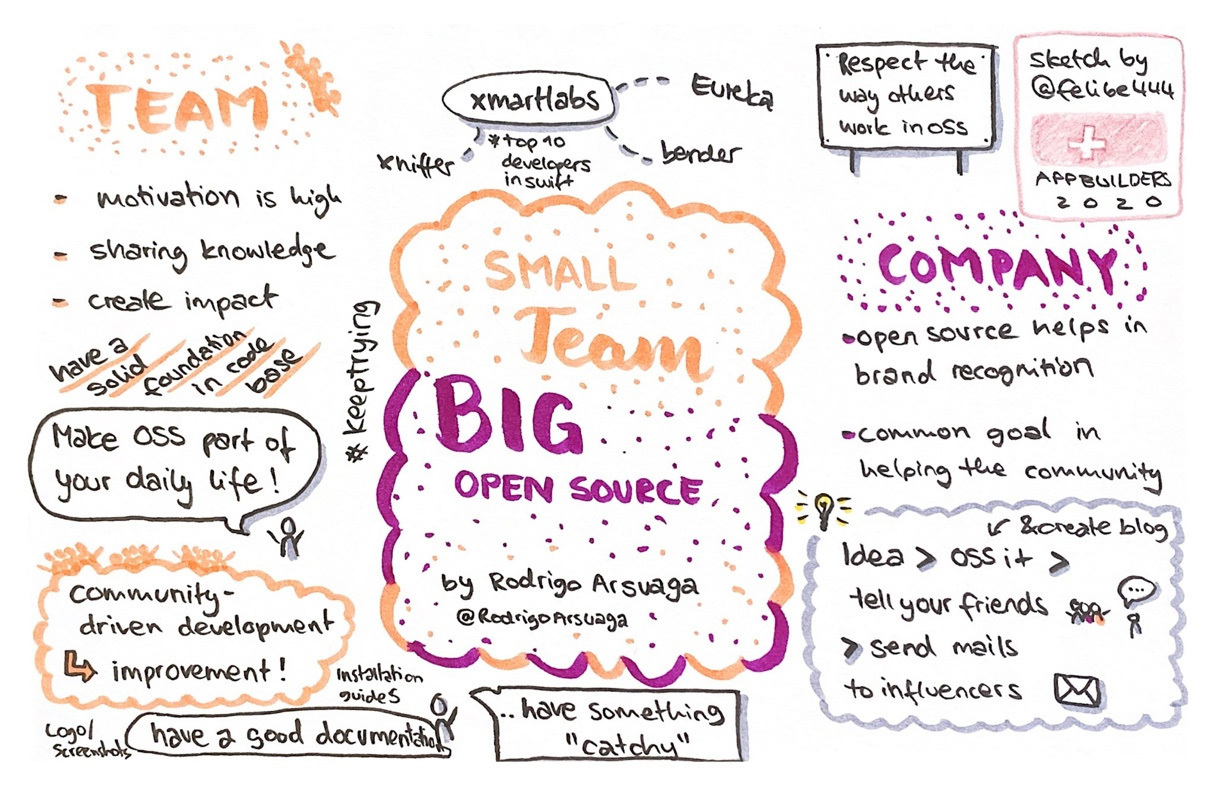 TEAM
- motivation is high
- sharing knowledge
- create impact
have a
solid
foundation
in code
base
Make OSS part of
your daily life!
community-
driven development
improvement!
Logo/
Screenshots
have a good documentation
Installation
guides
#keeptrying
xmartlabs
Eureka
bender
xniffer
*top 10
developers
in swift
SMALL
Team
BIG
OPEN SOURCE
by Rodrigo Arsuaga
@RodrigoArsuaga
.. have something
"catchy"
Respect the
way others
work in OSS
sketch by
@felibe444
APPBUILDERS
2020
COMPANY
•open source helps in
brand recognition
•common goal in
helping the community
& create blog
Idea > OSS it >
tell your friends
> send mails
to influencers